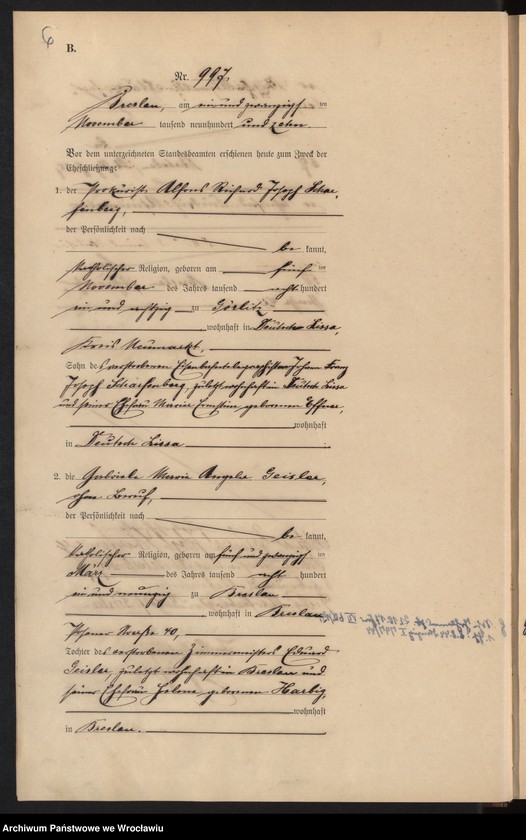 B.
Nr. 997.
Breslau, am ein und zwanzigsten
November tausend neunhundert und zehn.
Vor dem unterzeichneten Standesbeamten erschienen heute zum Zweck der
Eheschließung:
1. der Prokurist Alfons Richard Joseph
der Persönlichkeit nach
be kannt,
katholischer Religion, geboren am fünften
November des Jahres tausend acht hundert
ein und achtzig zu Görlitz,
wohnhaft in Deutsch Lissa,
Kreis Neumarkt,
Sohn des verstorbenen Franz
Joseph zuletzt wohnhaft in Deutsch Lissa
und seiner Ehefrau Marie Ernestine, geborenen
wohnhaft
in Deutsch Lissa
2. die Gabriele Maria Angela Geisler,
ohne Beruf,
der Persönlichkeit nach
be kannt,
katholischer Religion, geboren am fünf und zwanzigsten
März des Jahres tausend acht hundert
ein und neunzig zu Breslau
wohnhaft in Breslau,
Posener Straße 40,
Tochter des verstorbenen Zimmermeisters Eduard
Geisler, zuletzt wohnhaft in Breslau und
seiner Ehefrau Helene geborenen Harbig,
wohnhaft
in Breslau.
Archiwum Państwowe we Wrocławiu